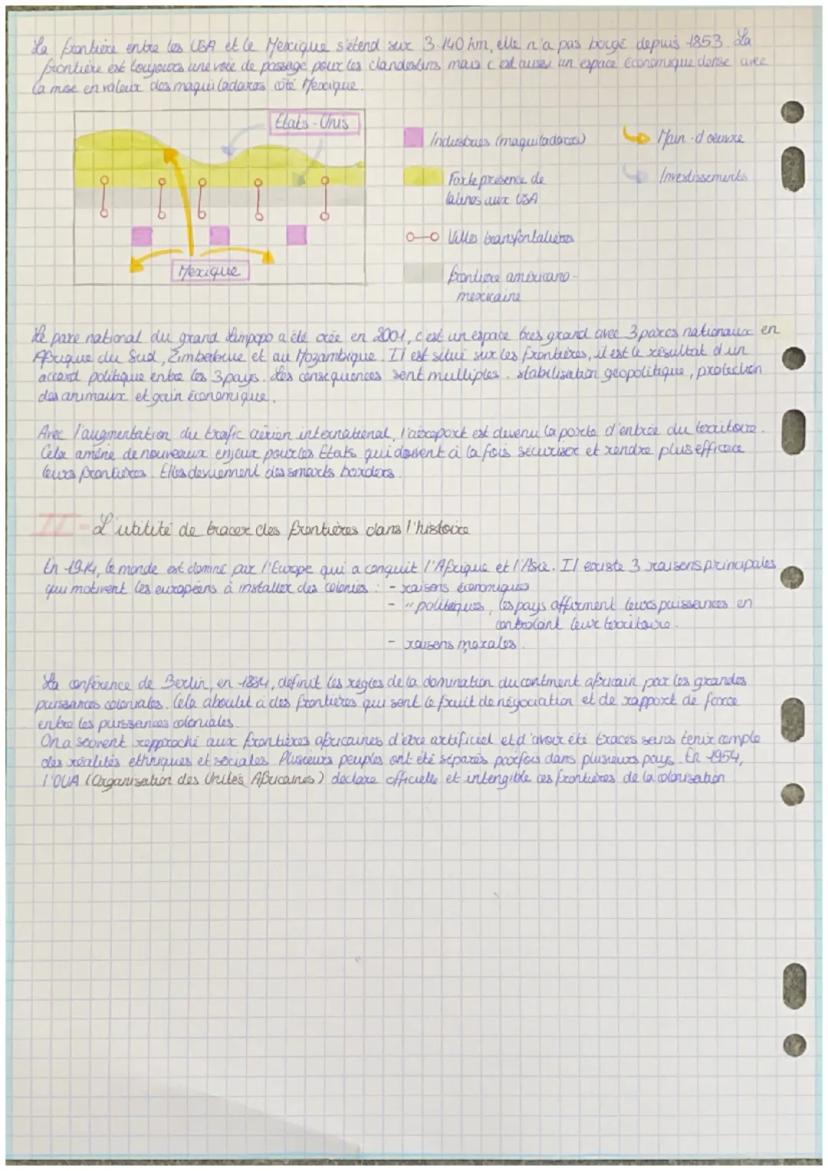 La frontière entre les USA et le Mexique s'étend sur 3 140 km, elle n'a pas bougé depuis 1853. La
frontière est toujours une voie de passage pour les clandestins mais c'est aussi un espace économique dense avec
la mise en valeur des maquiladoras côté Mexique.
Etats-Unis
Industries (maquiladoras)
Main-d'oeuvre
Forte présence de
latinos aux USA
Investissements
Villes transfontalières
Mexique
frontière américano-
mexicaine
Le parc national du grand Limpopo a été crée en 2001, c'est un espace très grand avec 3 parcs nationaux en
Afrique du Sud, Zimbabwe et au Mozambique. Il est situé sur les frontières, il est le résultat d'un
accord politique entre les 3 pays. Les conséquences sont multiples : stabilisation géopolitique, protection
des animaux et gain économique.
Avec l'augmentation du trafic aérien international, l'aéroport est devenu la porte d'entrée du territoire.
Cela amène de nouveaux enjeux pour les Etats qui doivent à la fois sécuriser et rendre plus efficace
leurs frontières. Elles deviennent des smarts borders.
II - L'utilité de tracer des frontières dans l'histoire
En 1914, le monde est dominé par l'Europe qui a conquit l'Afrique et l'Asie. Il existe 3 raisons principales
qui motivent les européens à installer des colonies : - raisons économiques
- " politiques, les pays affirment leurs puissances en
controlant leur territoire.
- raisons morales.
La conférence de Berlin, en 1884, définit les règles de la domination du continent africain par les grandes
puissances coloniales. Cela aboutit à des frontières qui sont le fruit de négociation et de rapport de force
entre les puissances coloniales.
On a souvent reproché aux frontières africaines d'être artificiel et d'avoir été tracés sans tenir compte
des réalités ethniques et sociales. Plusieurs peuples ont été séparés parfois dans plusieurs pays. En 1954,
l'OUA (Organisation des Unités Africaines) déclare officielle et intengible ces frontières de la colonisation